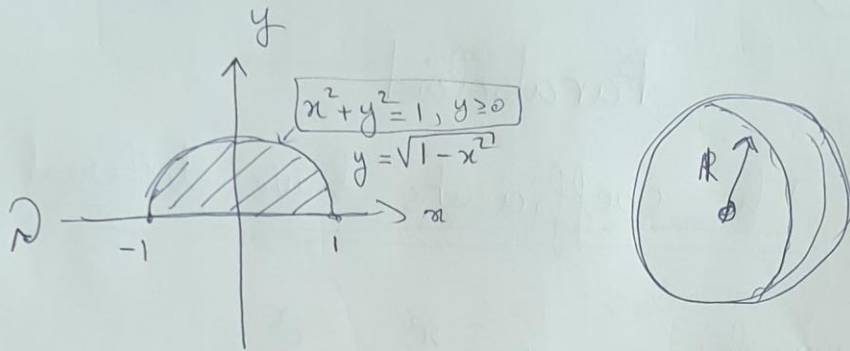 y
x² + y² = 1, y ≥ 0
y = √1 - x²
R
x
-1
1